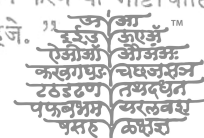 इजे. ”
अ आ TM
इईउ ऊएॲ
ऐओऑ औअंअः
कखगघङ चछजझञ
टठडढण तथदधन
पफबभम यरलवश
षसह ळक्षज्ञ